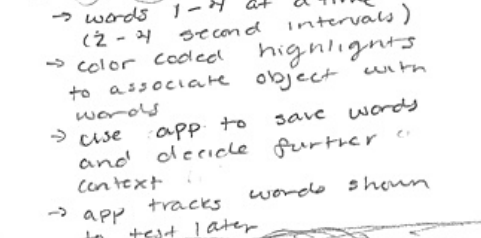 → words 1-4 at a time
(2-4 second intervals)
→ color coded highlights
to associate object with
words
→ use app to save words
and decide further
context
→ app tracks words shown
to test later